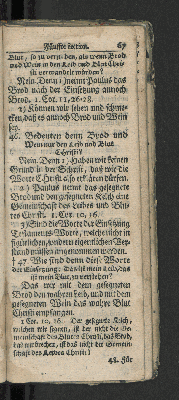 Fünffte Lection. 67
Blut, so zu verstehen, als wenn Brod
und Wein in den Leib und Blut Chri-
sti verwandelt würden?
Nein. Denn: nennet Paulus das
Brod nach der Einsetzung annoch
Brod, 1. Cor. 11, 26-28.
2) Können wir sehen und schme-
cken, daß es annoch Brod und Wein
sey.
46. Bedeuten denn Brod und
Wein nur den Leib und Blut
Christi?
Nein. Denn 1) haben wir keinen
Grund in der Schrift, daß wir die
Worte Christi also erklären dürfen.
2) Paulus nennt das gesegnete
Brod und den gesegneten Kelch eine
Gemeinschaft des Leibes und Blu-
tes Christi. 1. Cor. 10, 16.
3) Sind die Worte der Einsetzung
Testaments-Worte, welche nicht in
figürlichen, sondern eigentlichen Ver-
stand müssen angenommen werden.
47. Wie sind denn diese Worte
der Einsetzung: Das ist mein Leib, das
ist mein Blut, zu verstehen?
Das wir mit dem gesegneten
Brod den wahren Leib, und mit dem
gesegneten Wein das wahre Blut
Christi empfangen.
1 Cor. 10, 16. Der gesegnete Kelch,
welchen wir segnen, ist der nicht die Ge-
meinschaft des Blutes Christi, das Brod,
das wir brechen, ist das nicht die Gemein-
schaft des Leibes Christi?
48. Für